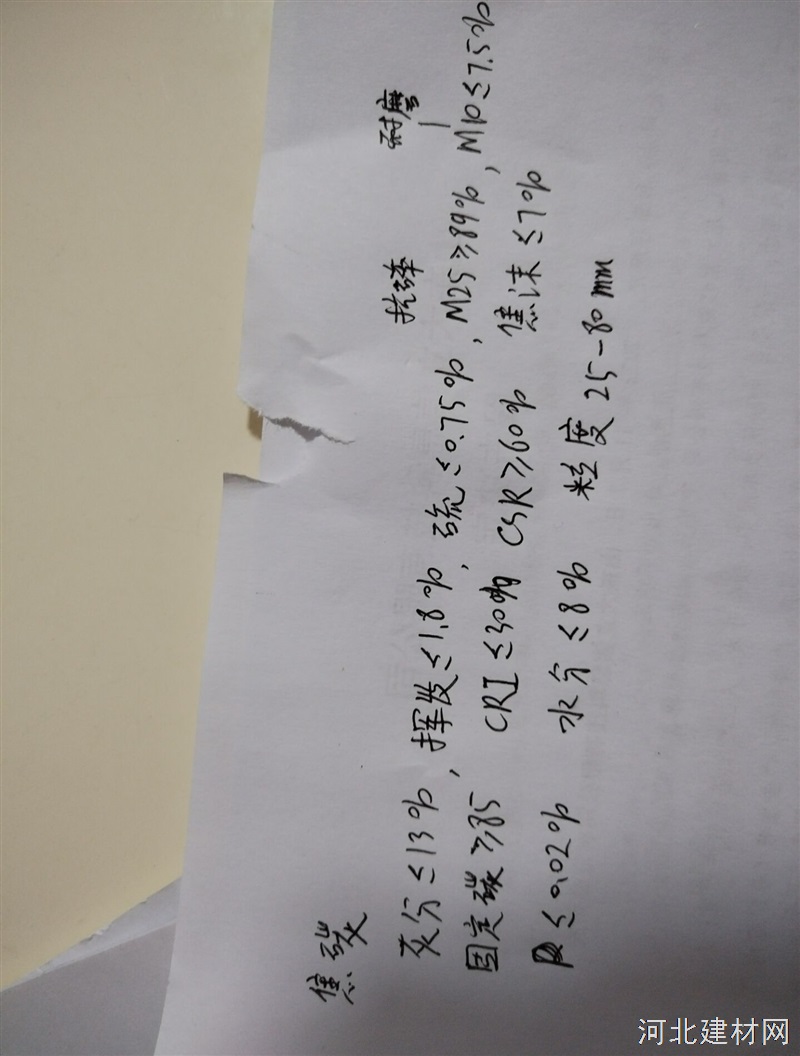 焦炭
抗碎 耐磨
灰分≤13%,挥发≤1.8%,硫≤0.75%,M25≥89%,M10≤7.5%
固定碳≥85 CRI≤30% CSR≥60% 焦沫≤7%
P≤0.02% 水分≤8% 粒度25-80mm
河北建材网